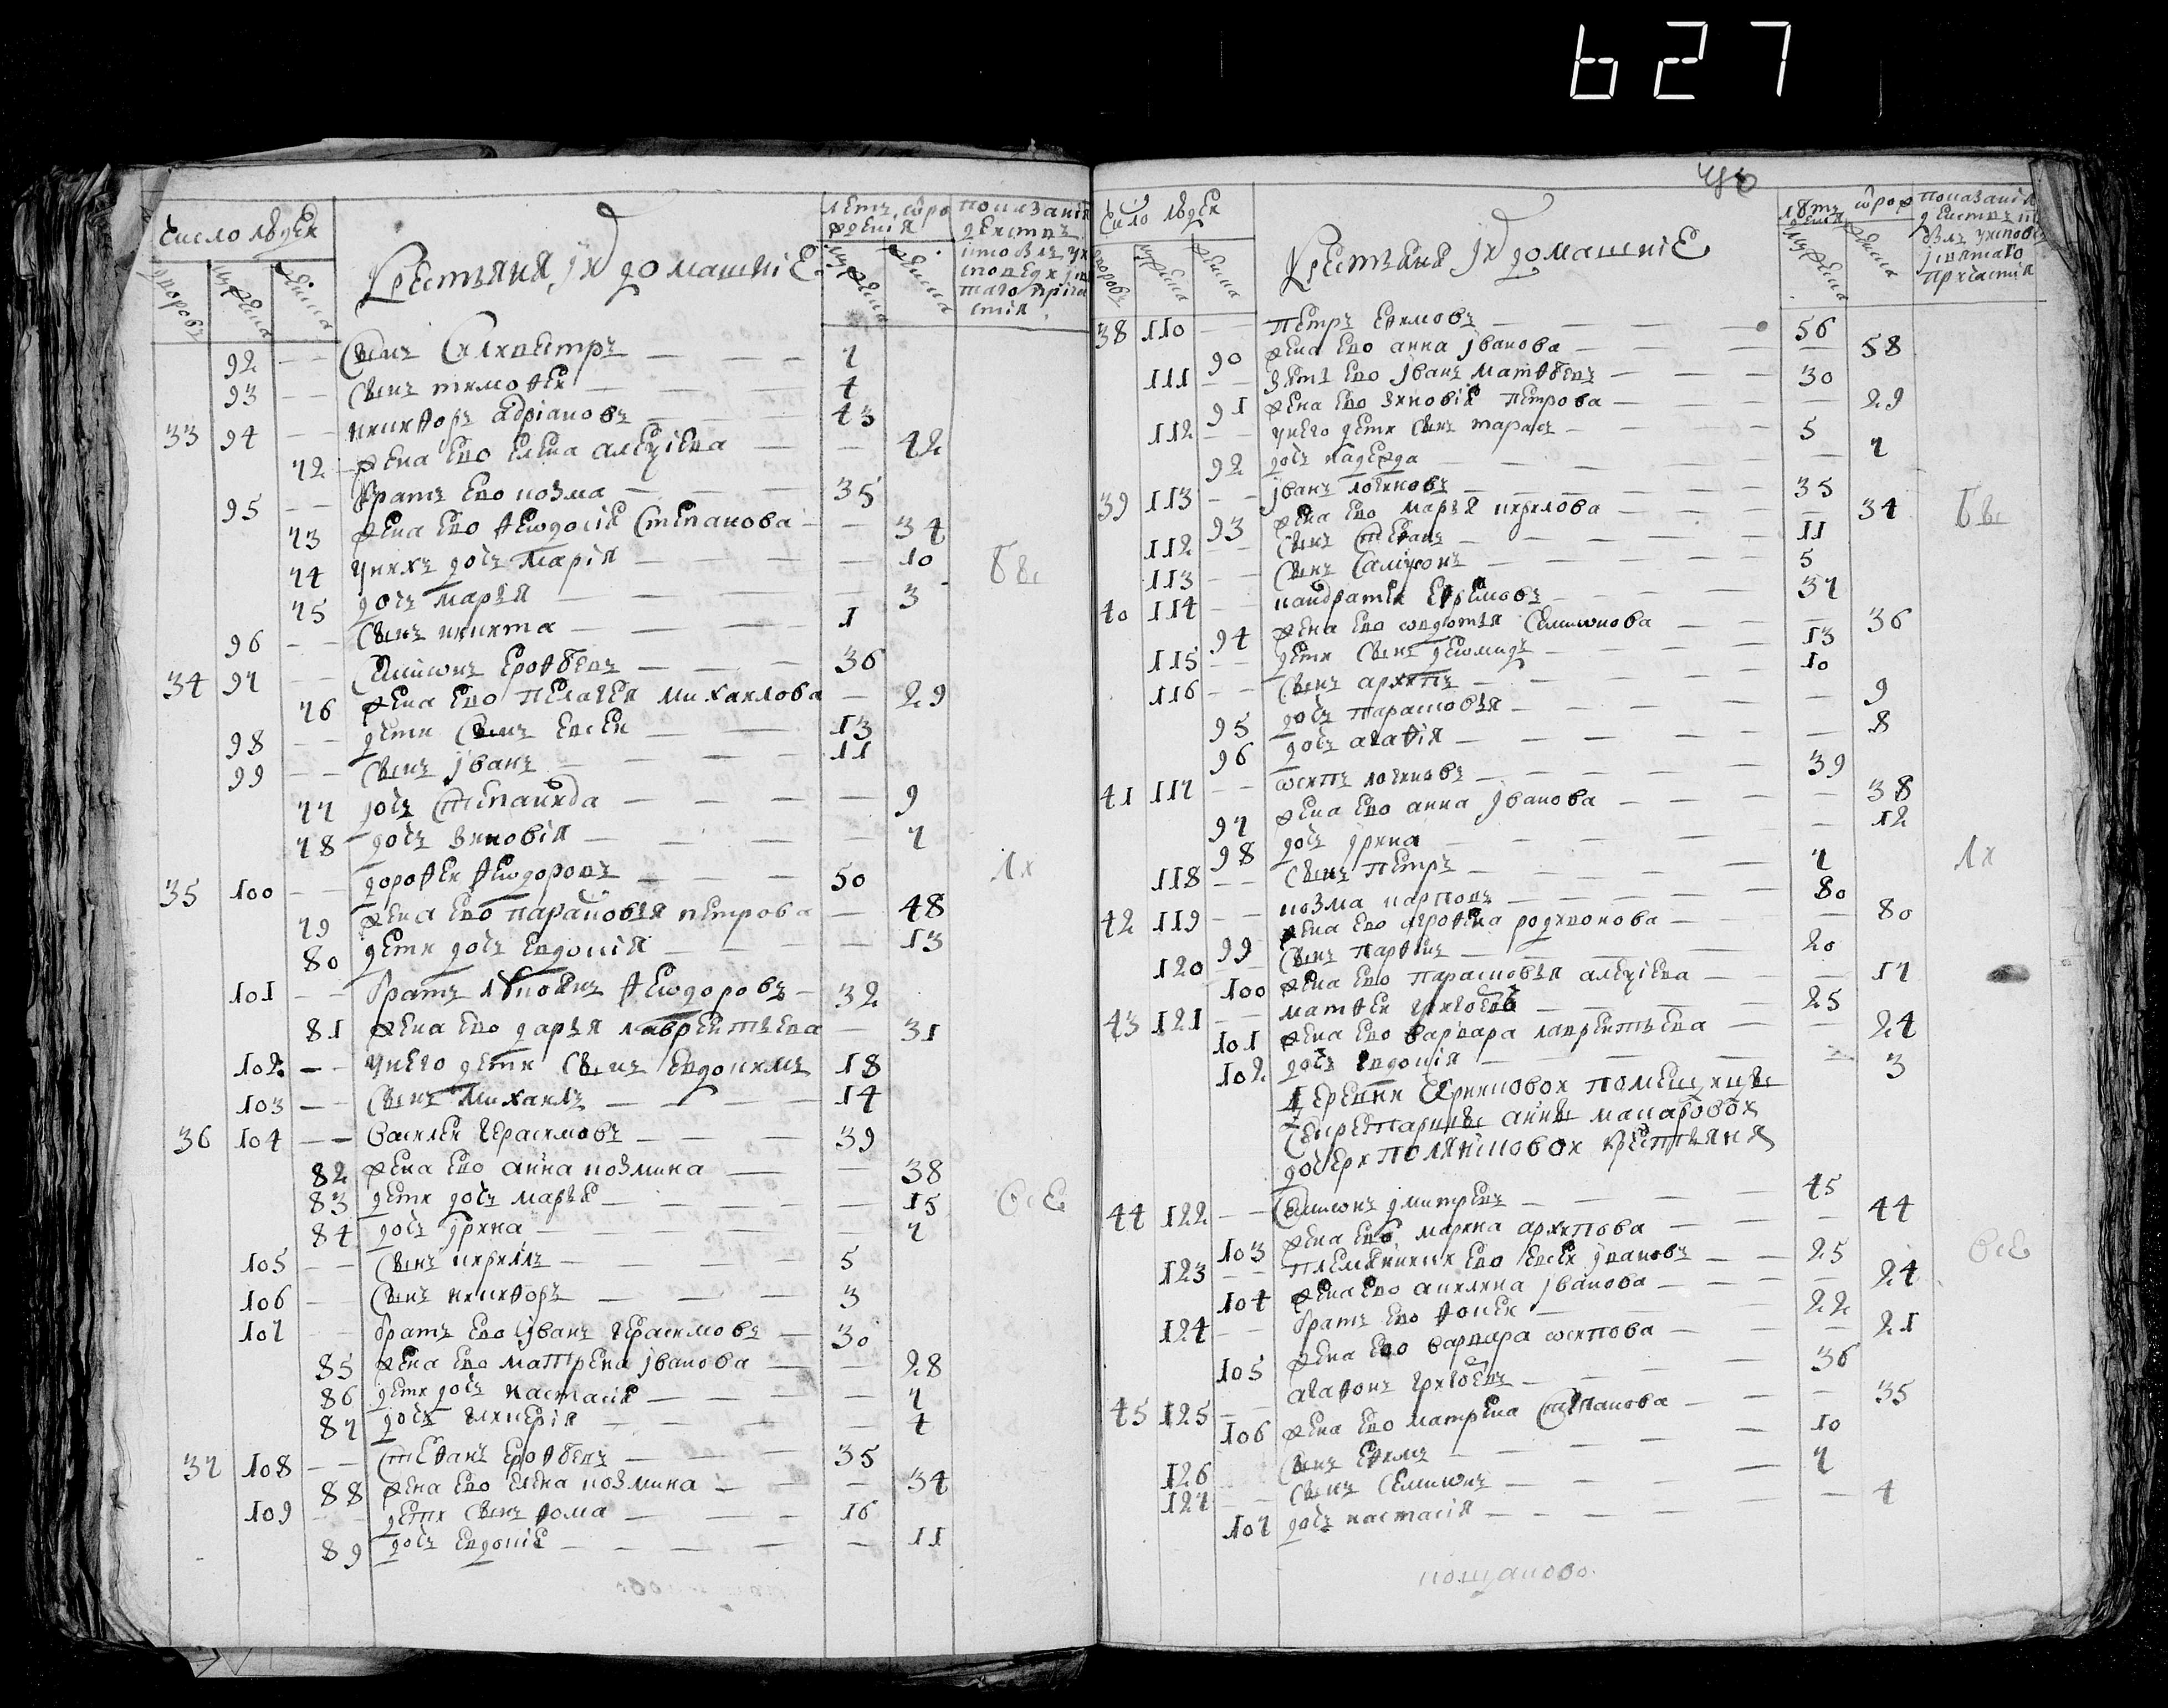 627
число людей
дворовъ
мужеска
женска
крестьяня их домашние
летъ от рождения
мужеска
женска
92 сынъ силивестръ 7
93 сынъ тимофеи 4
33 94 никифоръ адриановъ 43
72 жена ево елена алеѯиева 42
95 братъ ево козма 35
73 жена ево феѡдосия степанова 34
74 у нихъ дочь мария 10
75 дочь марья 3
96 сынъ никита 1
34 97 симионъ ерофѣевъ 36
76 жена ево пелагея михаилова 29
98 дети сынъ евсеи 13
99 сынъ иванъ 11
77 дочь степанида 9
78 дочь зиновия 7
35 100 дорофеи феѡдоровъ 50
79 жена ево парасковья петрова 48
80 дети дочь евдокия 13
101 братъ феѡдоровъ 32
81 жена ево дарья лаврентьева 31
102 у него дети сынъ евдокимъ 18
103 сынъ михаилъ 14
36 104 василеи герасимовъ 39
82 жена ево анна козмина 38
83 дети дочь марья 15
84 дочь ирина 7
105 сынъ кирилъ 5
106 сынъ никифоръ 3
107 братъ ево иванъ герасимовъ 30
85 жена ево матрена иванова 28
86 дети дочь настасия 7
87 дочь гликерия 4
37 108 стефанъ ерофѣевъ 35
88 жена ево елена козмина 34
109 дети сынъ фома 16
89 дочь евдокия 11
число людеи
дворовъ
мужеска
женска
крестьяня их домашние
лѣтъ от рождения
мужеска
женска
38 110 петръ ефимовъ 56
90 жена ево анна иванова 58
111 зять ево иванъ матфѣевъ 30
91 жена ево зиновия петрова 29
112 у него дети сынъ тарасъ 5
92 дочь надежда 7
39 113 иванъ логиновъ 35
93 жена ево марья кирилова 34
112 сынъ стефанъ 11
113 сынъ самсонъ 5
40 114 кандратеи ефремовъ 37
94 жена ево ѡвдотья симионова 36
115 дети сынъ деѡмидъ 13
116 сынъ архипъ 10
95 дочь парасковья 9
96 дочь агафия 8
41 117 ѡсипъ логиновъ 39
97 жена ево анна иванова 38
98 дочь ирина 12
118 сынъ петръ 7
42 119 козма карповъ 80
99 жена ево агрофена родионова 80
120 сынъ парфенъ 20
100 жена ево парасковья алеѯиева 17
43 121 матфеи григоревъ 25
101 жена ево варвара лаврентьева 24
102 дочь евдокия 3
деревни помещицы
секретарши анны макаровои
дочери поляниновои крестьяня
44 122 симионъ дмитревъ 45
103 жена ево марина архипова 44
123 племянникъ ево евсеи ивановъ 25
104 жена ево акилина иванова 24
124 братъ ево фокеи 22
105 жена ево варвара ѡсипова 21
45 125 агафонъ григоревъ 36
106 жена ево матрена степанова 35
126 сынъ ефимъ 10
127 сынъ семионъ 7
107 дочь настасия 4